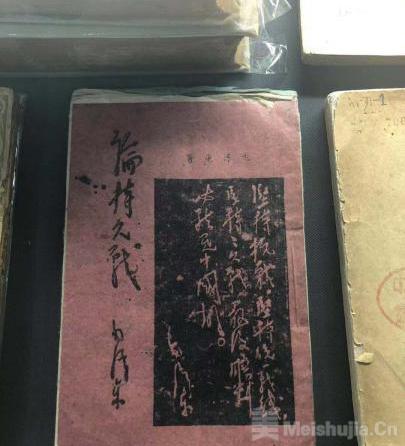 毛澤東著
堅持抗戰,堅持統一戰綫,
堅持持久戰,最後勝利
必然是中國的。
毛澤東
論持久戰
毛澤東
中
美 Meishujia.Cn